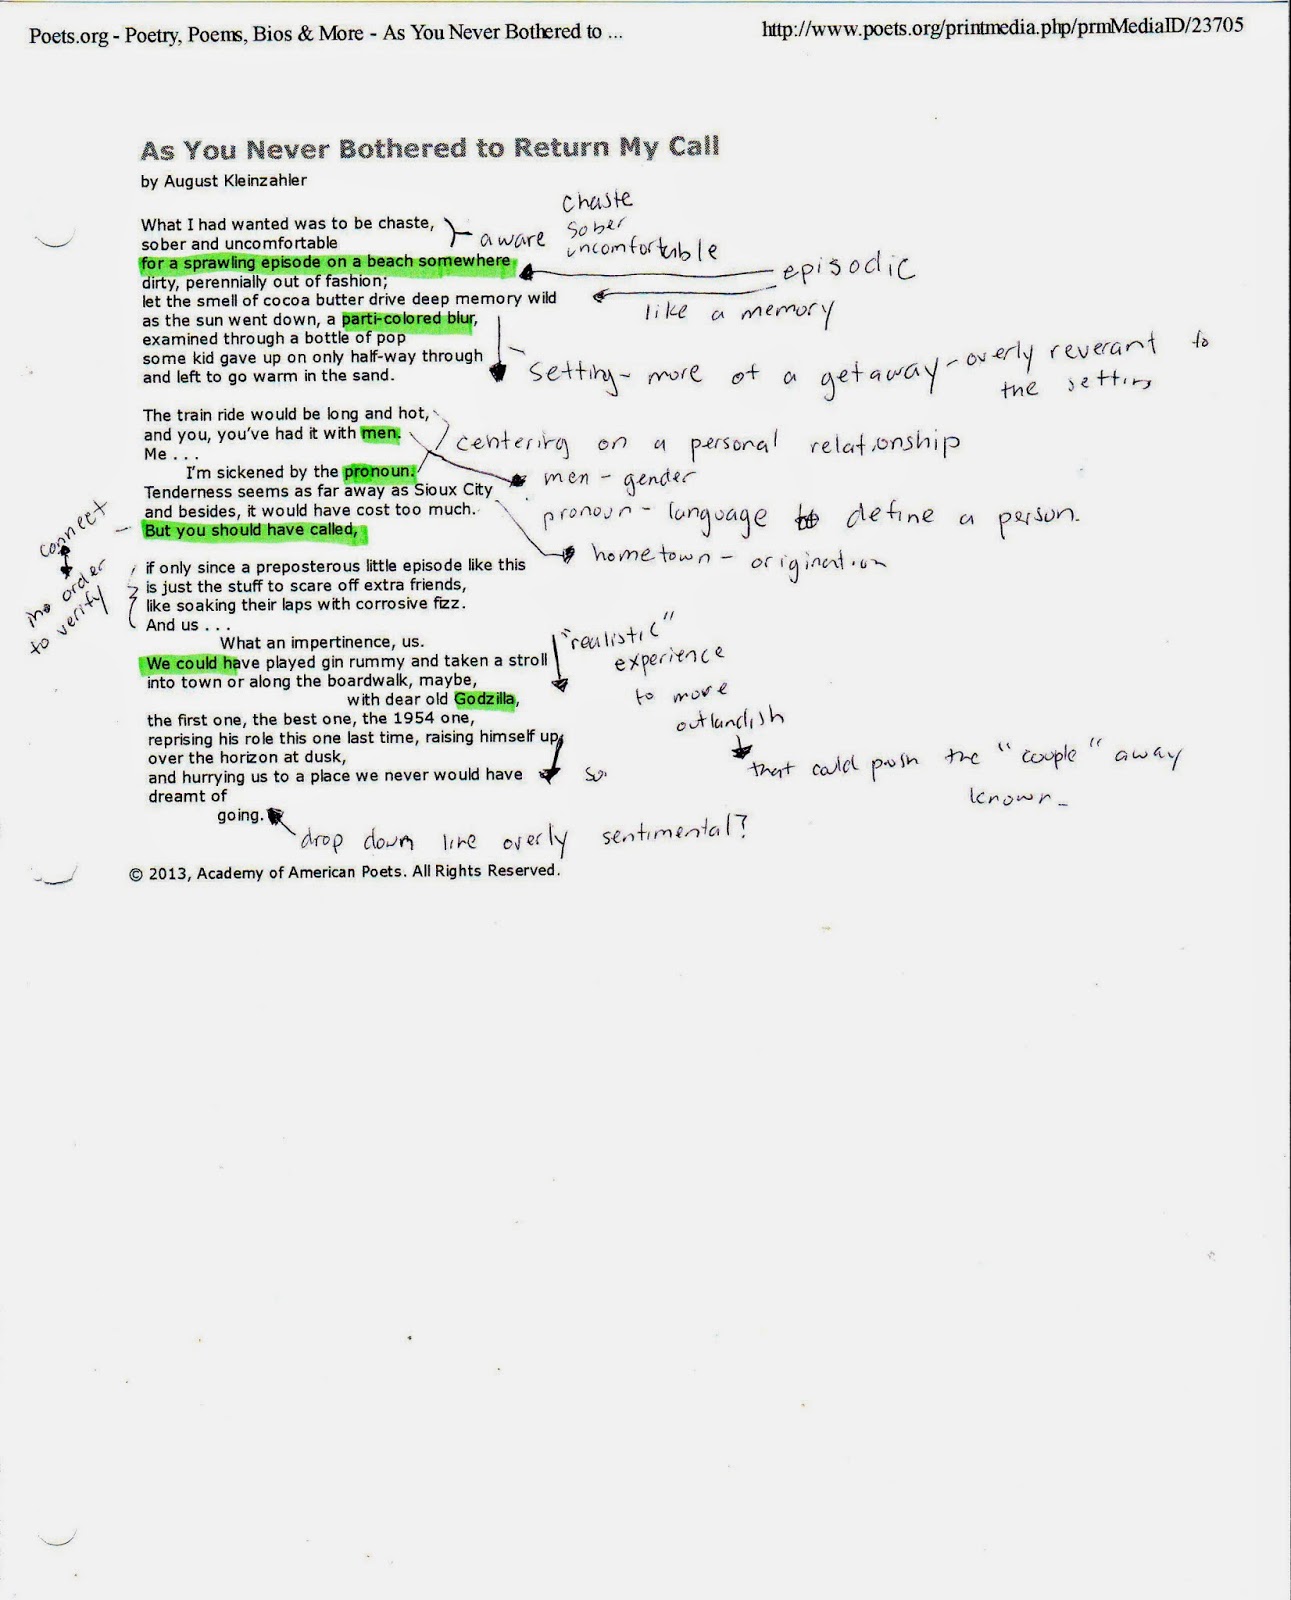 Poets.org - Poetry, Poems, Bios & More - As You Never Bothered to ...
http://www.poets.org/printmedia.php/prmMediaID/23705
As You Never Bothered to Return My Call
by August Kleinzahler
What I had wanted was to be chaste,
sober and uncomfortable
for a sprawling episode on a beach somewhere
dirty, perennially out of fashion;
let the smell of cocoa butter drive deep memory wild
as the sun went down, a parti-colored blur,
examined through a bottle of pop
some kid gave up on only half-way through
and left to go warm in the sand.
The train ride would be long and hot,
and you, you've had it with men.
Me . . .
I'm sickened by the pronoun.
Tenderness seems as far away as Sioux City
and besides, it would have cost too much.
But you should have called,
if only since a preposterous little episode like this
is just the stuff to scare off extra friends,
like soaking their laps with corrosive fizz.
And us . . .
What an impertinence, us.
We could have played gin rummy and taken a stroll
into town or along the boardwalk, maybe,
with dear old Godzilla,
the first one, the best one, the 1954 one,
reprising his role this one last time, raising himself up
over the horizon at dusk,
and hurrying us to a place we never would have
dreamt of
going.
© 2013, Academy of American Poets. All Rights Reserved.
chaste
aware sober
uncomfortable
episodic
like a memory
setting - more of a getaway - overly reverant to
the setting
centering on a personal relationship
men - gender
pronoun - language to define a person.
hometown - origination
connect
order
to verify
"realistic"
experience
to more
outlandish
that could push the "couple" away
known
so
drop down like overly sentimental?